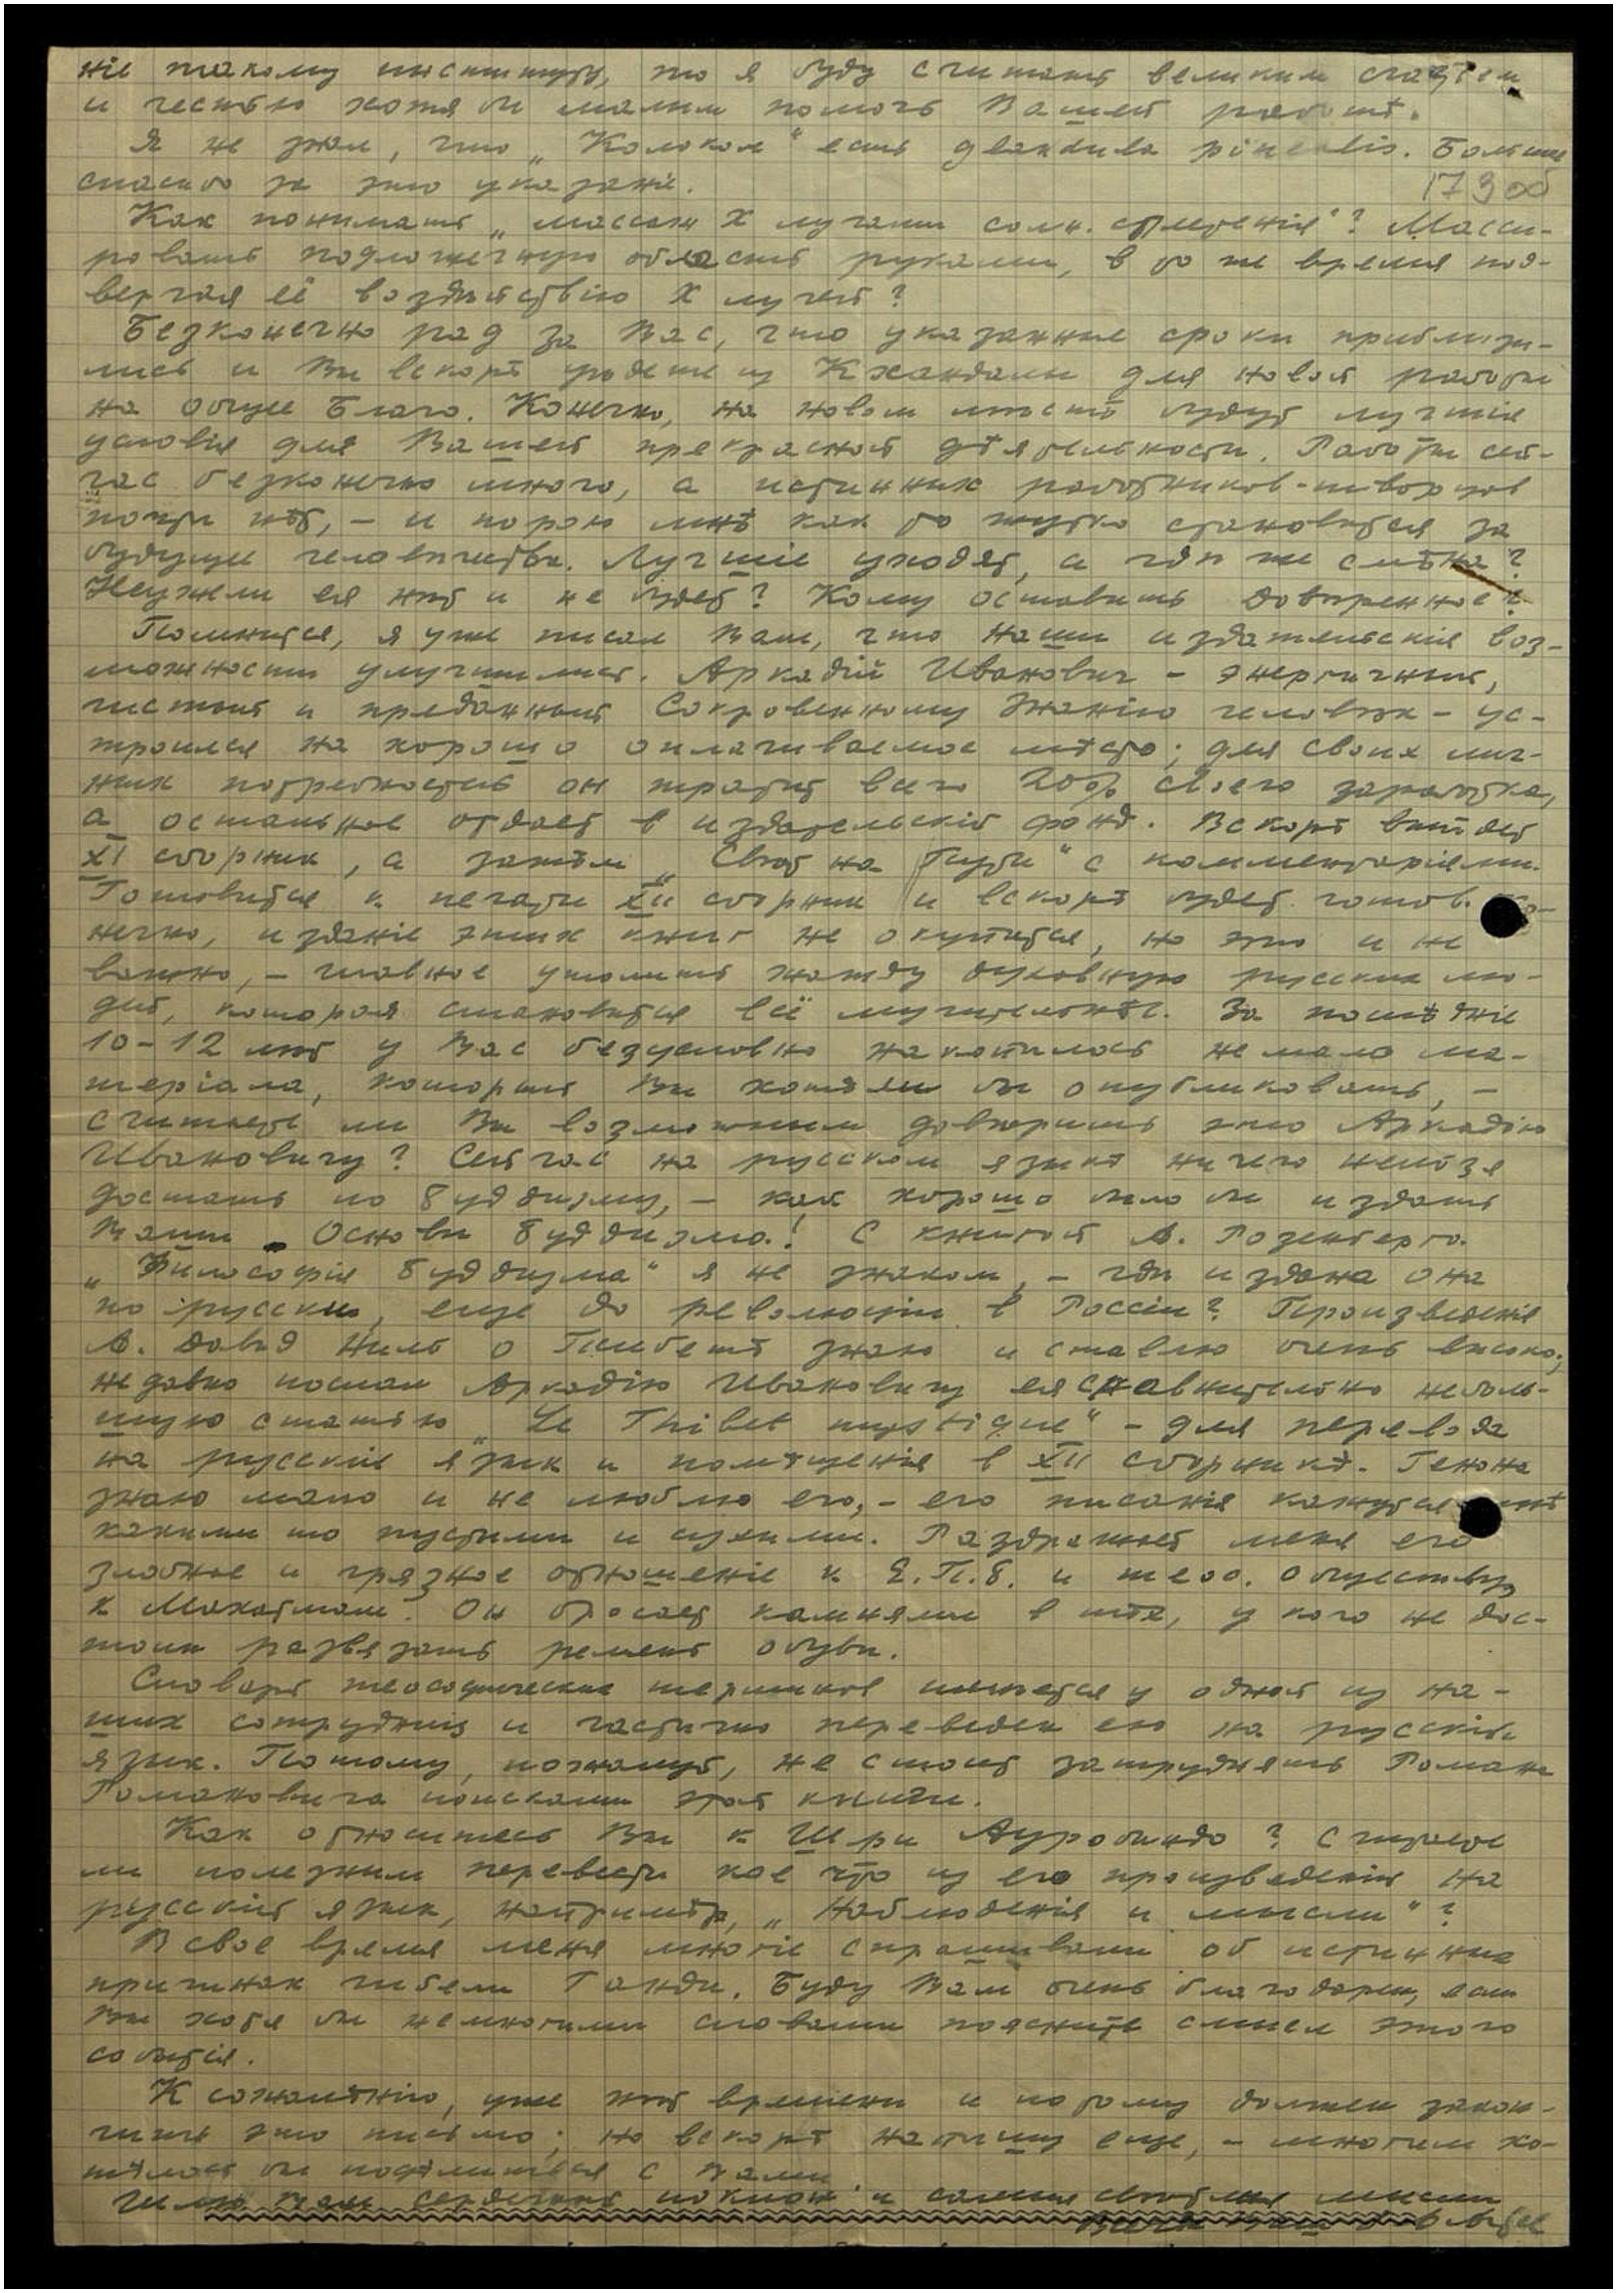 ніе такому институту, то я буду считать великим счастьем
и честью хотя бы малым помочь Вашей работѣ.
Я не знал, что „Колокол“ есть glandula pinealis. Большое
спасибо за это указаніе.
173 об
Как понимать „массаж X лучами солн. сплетенія“? Масси-
ровать подложечную область руками, в то же время под-
вергая её воздѣйствію X лучей?
Безконечно рад за Вас, что указанные сроки приблизи-
лись и Вы вскорѣ уѣдете из Кхандалы для новой работы
на общее Благо. Конечно, на новом мѣстѣ будут лучшія
условія для Вашей прекрасной дѣятельности. Работы сей-
час безконечно много, а истинных работников-творцов
почти нѣт, – и порою мнѣ как то жутко становится за
будущее человѣчества. Лучшіе уходят, а гдѣ же смѣна?
Неужели ея нѣт и не будет? Кому оставить довѣренное?
Помнится, я уже писал Вам, что наши издательскія воз-
можности улучшились. Аркадій Иванович – энергичный,
чистый и преданный Сокровенному Знанію человѣк – ус-
троился на хорошо оплачиваемое мѣсто; для своих лич-
ных потребностей он тратит всего 20% своего заработка,
а остальное отдает в издательскій фонд. Вскорѣ выйдет
XI сборник, а затѣм „Свѣт на Пути“ с комментаріями.
Готовится к печати XII сборник и вскорѣ будет готов. Ко-
нечно, изданіе этих книг не окупится, но это и не
важно, – главное утолить жажду духовную русских лю-
дей, которая становится всё мучительнѣе. За послѣдніе
10-12 лѣт у Вас безусловно накопилось немало ма-
теріала, который Вы хотѣли бы опубликовать, –
считаете ли Вы возможным довѣрить это Аркадію
Ивановичу? Сейчас на русском языкѣ ничего нельзя
достать по буддизму, – как хорошо было бы издать
Ваши Основы буддизма! С книгой А. Розенберга
„Философія буддизма“ я не знаком, – гдѣ издана она
по русски, еще до революціи в Россіи? Произведенія
А. Давид Ниль о Тибетѣ знаю и ставлю очень высоко;
недавно послал Аркадію Ивановичу ея сравнительно неболь-
шую статью „Le Thibet mystique“ – для перевода
на русскій язык и помѣщенія в XII сборникѣ. Генона
знаю мало и не люблю его, – его писанія кажутся мнѣ
какими то пустыми и сухими. Раздражает меня его
злобное и грязное отношеніе к Е.П.Б. и теос. обществу,
к Махатмам. Он бросает камнями в тѣх, у кого не дос-
тоин развязать ремень обуви.
Словарь теософических терминов имѣется у одной из на-
ших сотрудниц и частично переведен ею на русскій
язык. Потому, пожалуй, не стоит затруднять Романа
Романовича поисками этой книги.
Как относитесь Вы к Шри Ауробиндо? Считаете
ли полезным перевести кое что из его произведеній на
русскій язык, напримѣр, „Наблюденія и мысли“?
В свое время меня многіе спрашивали об истинных
причинах гибели Ганди. Буду Вам очень благодарен, если
Вы хотя бы немногими словами поясните смысл этого
событія.
К сожалѣнію, уже нѣт времени и потому должен закон-
чить это письмо; но вскорѣ напишу еще, – многим хо-
тѣлось бы подѣлиться с Вами.
Шлю Вам сердечный поклон и самыя свѣтлыя мысли